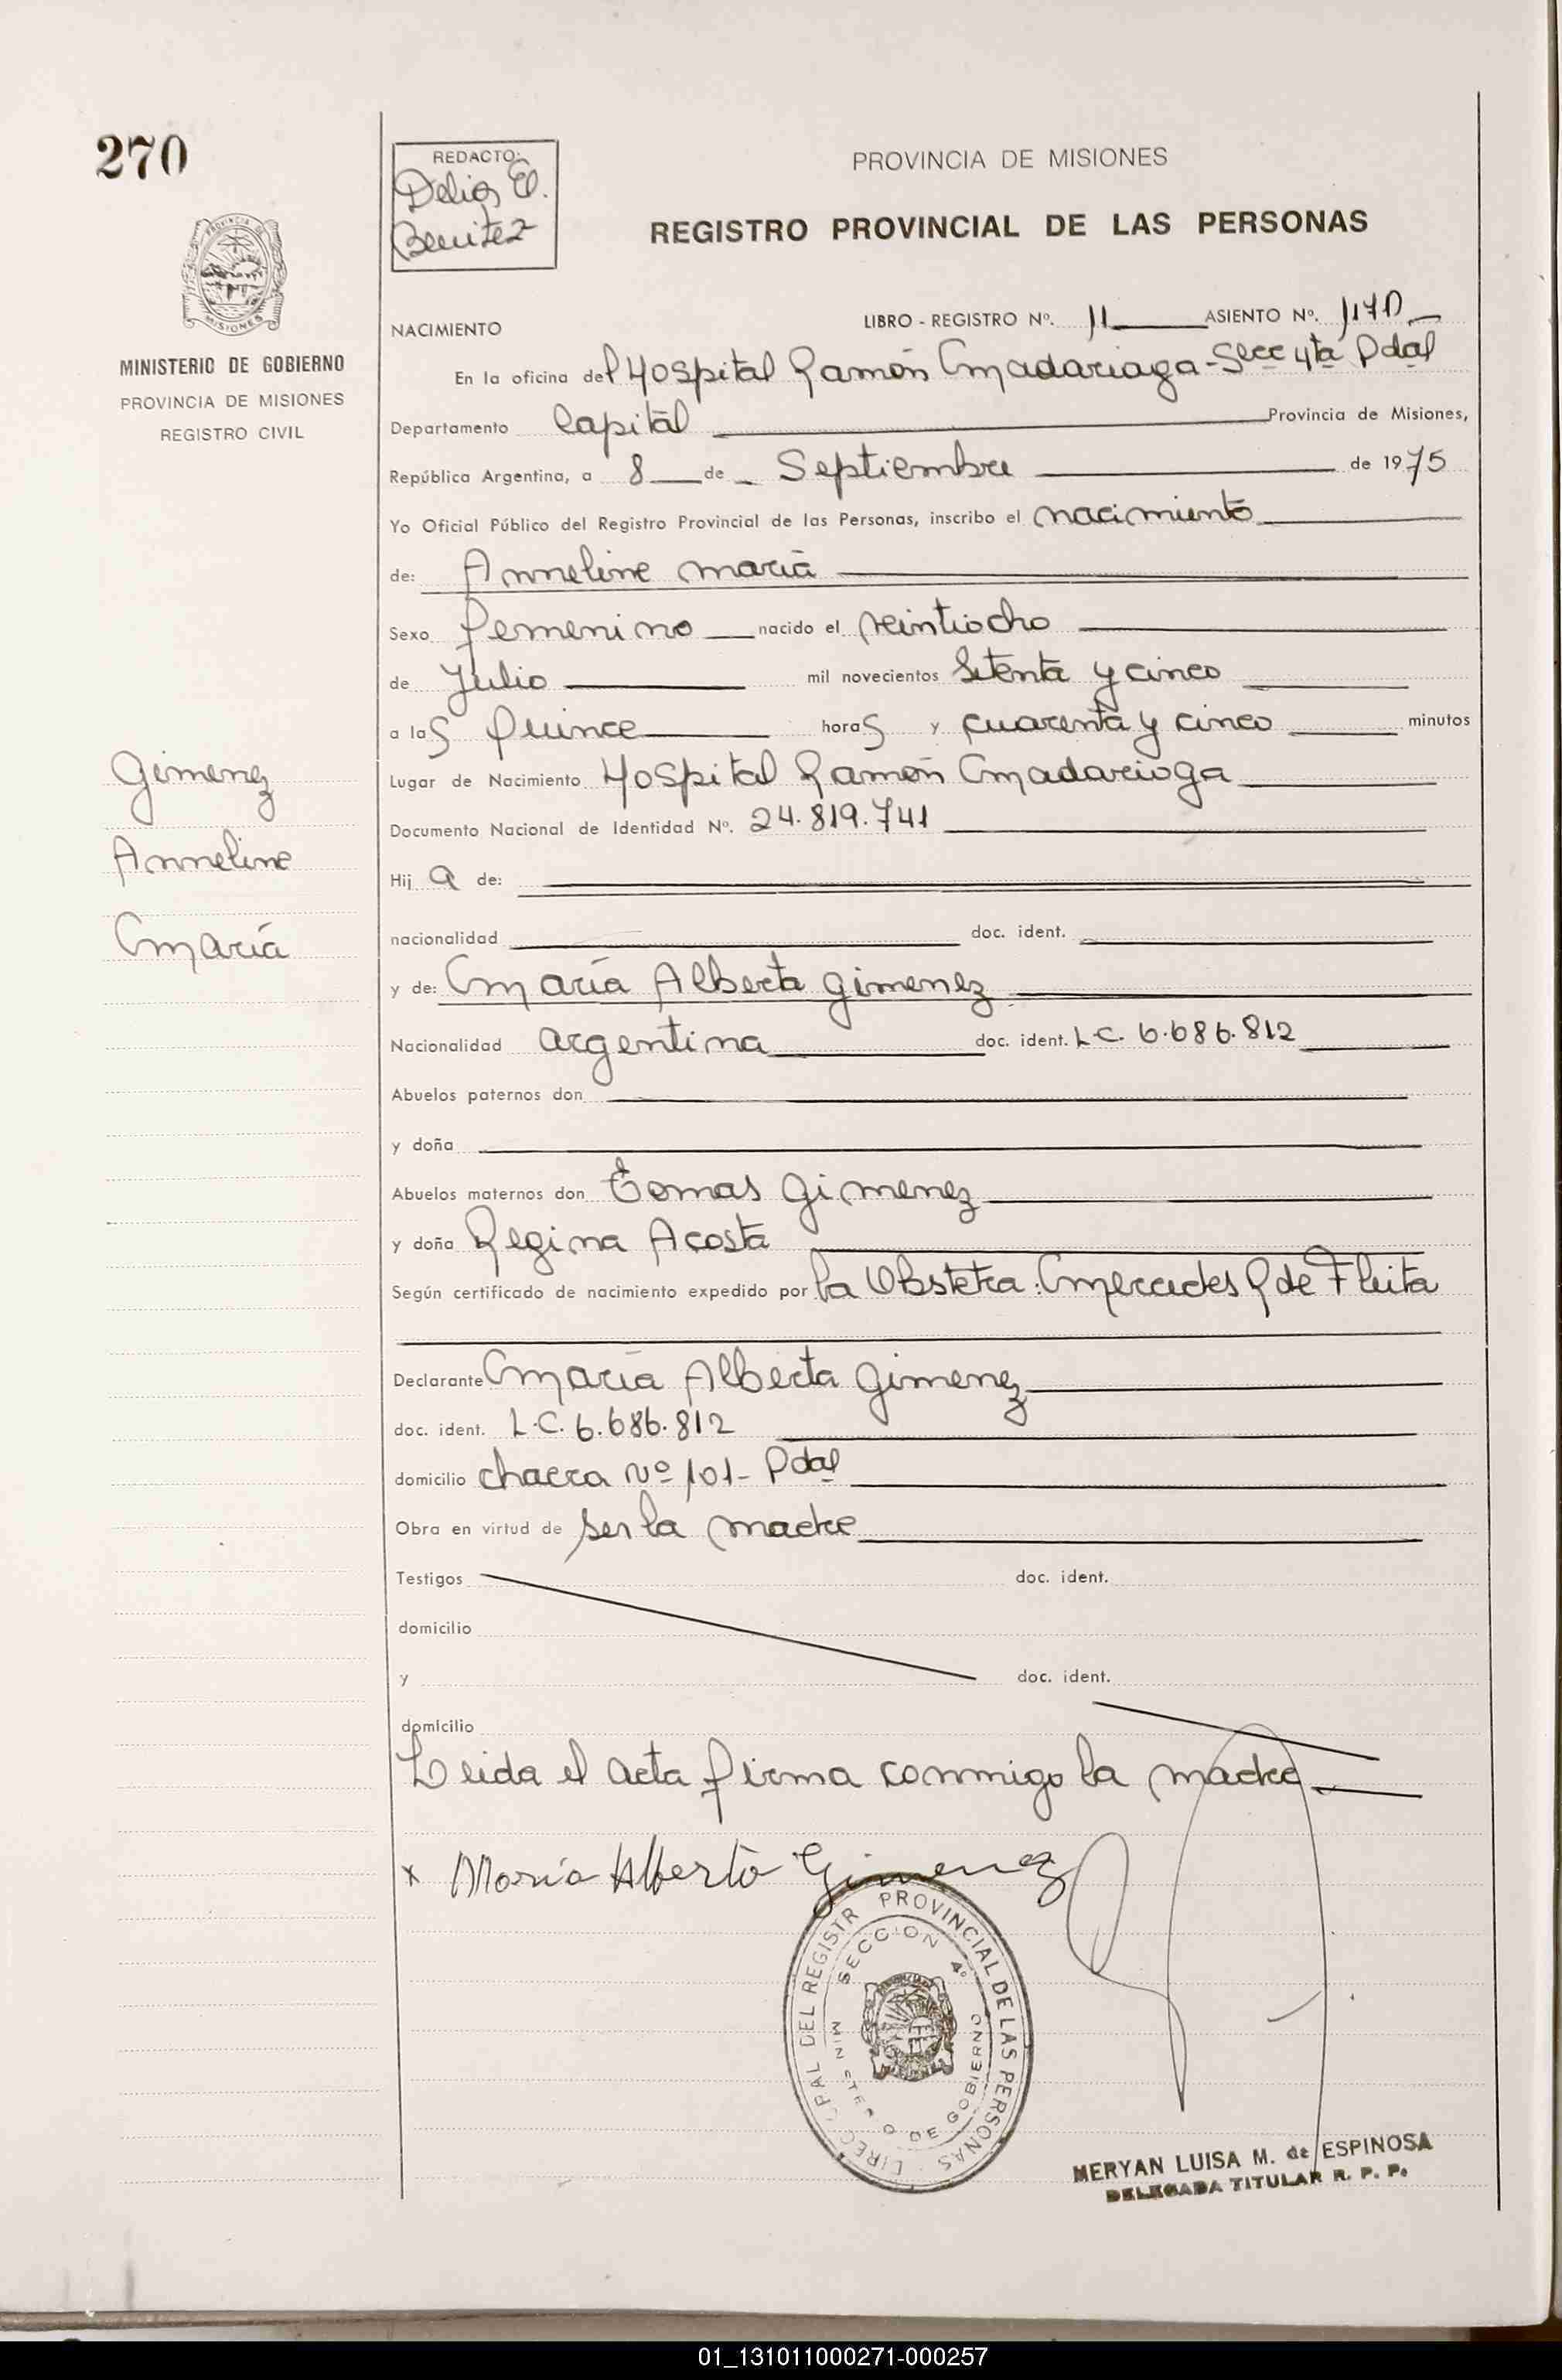 270
REDACTO:
Delia E.
Benitez
PROVINCIA DE MISIONES
REGISTRO PROVINCIAL DE LAS PERSONAS
MISIONES
MINISTERIO DE GOBIERNO
PROVINCIA DE MISIONES
REGISTRO CIVIL
NACIMIENTO
LIBRO - REGISTRO Nº. 11 ASIENTO Nº.
En la oficina del Hospital Ramón Madariaga - Secc 4ta Pdal
Departamento Capital Provincia de Misiones,
República Argentina, a 8 de Septiembre de 1975
Yo Oficial Público del Registro Provincial de las Personas, inscribo el nacimiento
de: Anneline maría
Sexo femenino nacido el veintiocho
de Julio mil novecientos Setenta y cinco
a las quince horas y cuarenta y cinco minutos
Lugar de Nacimiento Hospital Ramón Madariaga
Documento Nacional de Identidad Nº. 24.819.741
Hij a de:
nacionalidad doc. ident.
y de: María Alberta Gimenez
Nacionalidad argentina doc. ident. L.C. 6.686.812
Abuelos paternos don
y doña
Abuelos maternos don Tomas Gimenez
y doña Regina Acosta
Según certificado de nacimiento expedido por la Obstetra: Mercedes R de Fleita
Declarante María Alberta Gimenez
doc. ident. L.C. 6.686.812
domicilio chacra Nº 101- Pdal
Obra en virtud de ser la madre
Testigos doc. ident.
domicilio
y doc. ident.
domicilio
Leida el acta firma conmigo la madre
x María Alberta Gimenez
Gimenez
Anneline
María
PROVINCIAL DE LAS PERSONAS
SECCION 4º
DE GOBIERNO
MERYAN LUISA M. de ESPINOSA
DELEGADA TITULAR R. P. P.
01_131011000271-000257